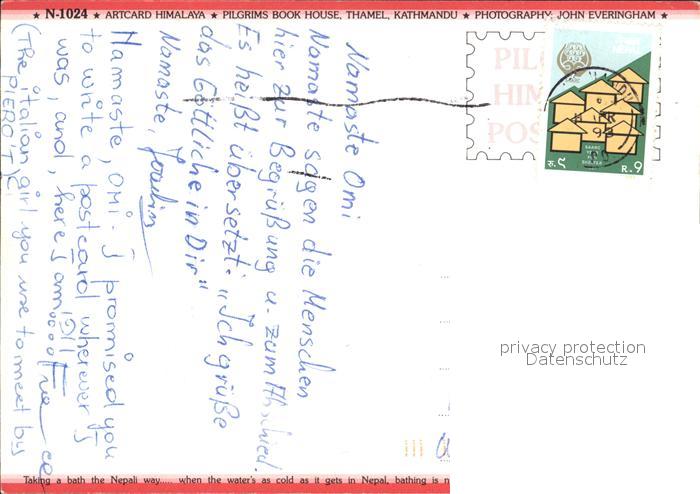 ★ N-1024 ★ ARTCARD HIMALAYA ★ PILGRIMS BOOK HOUSE, THAMEL, KATHMANDU ★ PHOTOGRAPHY: JOHN EVERINGHAM ★
Namaste Omi
Namaste sagen die Menschen
hier zur Begrüßung u. zum Abschied.
Es heißt übersetzt: "Ich grüße
das Göttliche in Dir"
Namaste,
Namaste, OMI - I promised you
to write a postcard wherever I
was, and, here I am....
(The italian girl you use to meet by
PIERO'T)
PIL
HIM
POS
NEPAL
SAARC
SHELTER
रु. ९
R. 9
privacy protection
Datenschutz
Taking a bath the Nepali way..... when the water's as cold as it gets in Nepal, bathing is n